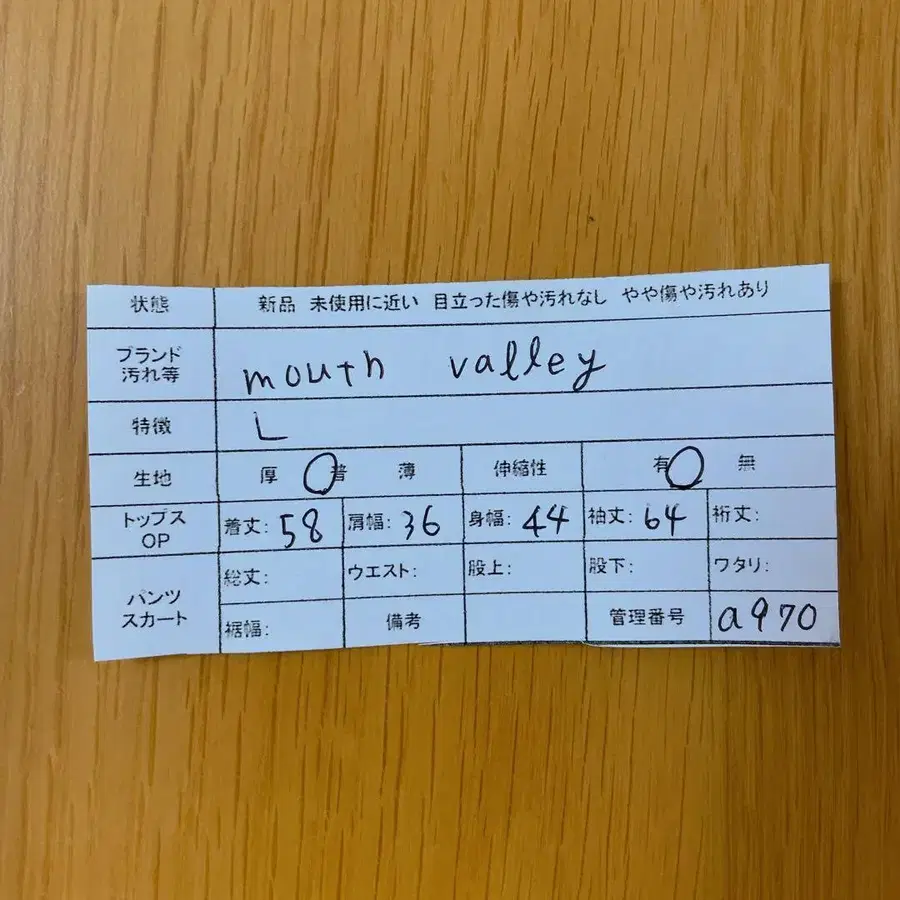 状態 新品 未使用に近い 目立った傷や汚れなし やや傷や汚れあり
ブランド
汚れ等 mouth valley
特徴 L
生地 厚 普 薄 伸縮性 有 無
トップス
OP 着丈: 58 肩幅: 36 身幅: 44 袖丈: 64 裄丈:
パンツ
スカート 総丈: ウエスト: 股上: 股下: ワタリ:
裾幅: 備考 管理番号 a970